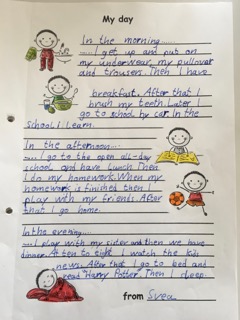 My day
In the morning......
..... I get up and put on
my underwear, my pullover
and trousers. Then I have
breakfast. After that I
brush my teeth. Later I
go to school by car. In the
school i learn.
In the afternoon...
.... I go to the open all-day
school and have lunch. Then
I do my homework. When my
homework is finished then I
play with my friends. After
that I go home.
In the evening....
... I play with my sister and then we have
dinner. At ten to eight I watch the kids
news. After that I go to bed and
read Harry Potter. Then I sleep.
from Svea